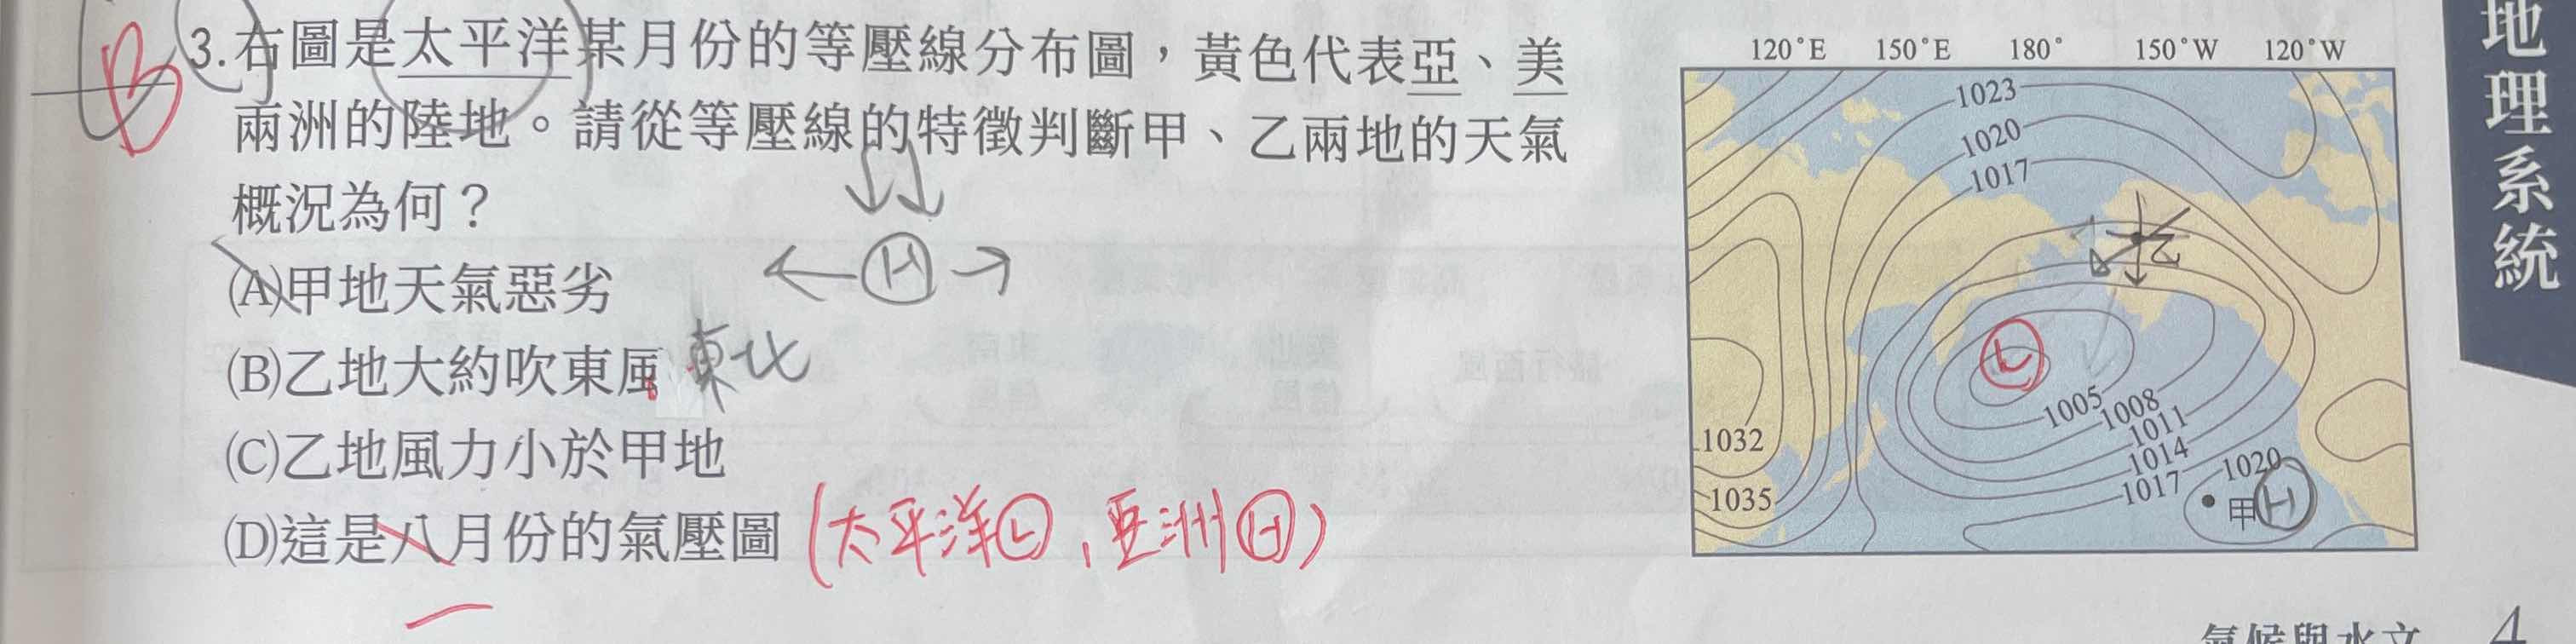 B
3.右圖是太平洋某月份的等壓線分布圖，黃色代表亞、美
兩洲的陸地。請從等壓線的特徵判斷甲、乙兩地的天氣
概況為何？
(A)甲地天氣惡劣
H
(B)乙地大約吹東風 東北
(C)乙地風力小於甲地
(D)這是八月份的氣壓圖 (太平洋L，亞洲H)
一
120°E 150°E 180° 150°W 120°W
1023
1020
1017
乙
L L
1005
1008
1011
1014
1017
1020
甲 H
1032
1035
地理系統
氣候與水文 4